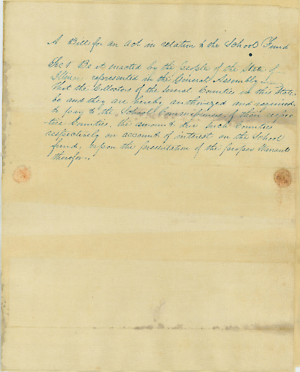 A Bill for an act in relation to the School Fund
Sec 1 Be it enacted by the People of the State of
Illinois, represented in the General Assembly,
That the Collectors of the several Counties in this State
be and they are hereby authorized and required
to pay to the School Commissioners of their respec-
tive Counties, the amount due such Counties
respectively on account of interest on the School
fund, upon the presentation of the proper
therefor